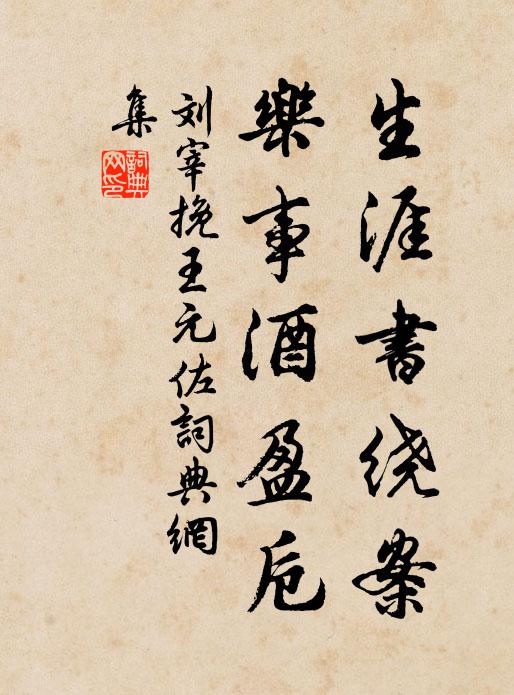 生涯書绕案
樂事酒盈卮
刘宰挽王元佐詞典網
集
詞典網印